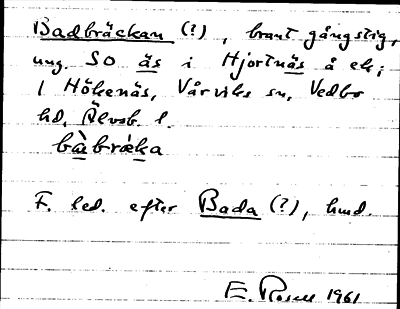 Badbräckan (?), brant gångstig,
ung. SO äs i Hjortnäs å ek;
i Hökenäs, Vårviks sn, Vedbo
hd, Älvsb. l.
bàbrǽka
F. led. efter Bada (?), hmd.
E. Rosell 1961